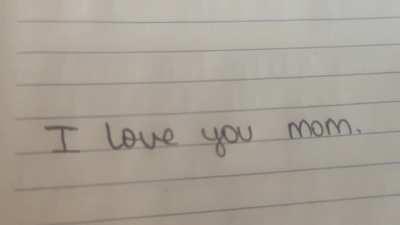 I love you mom.